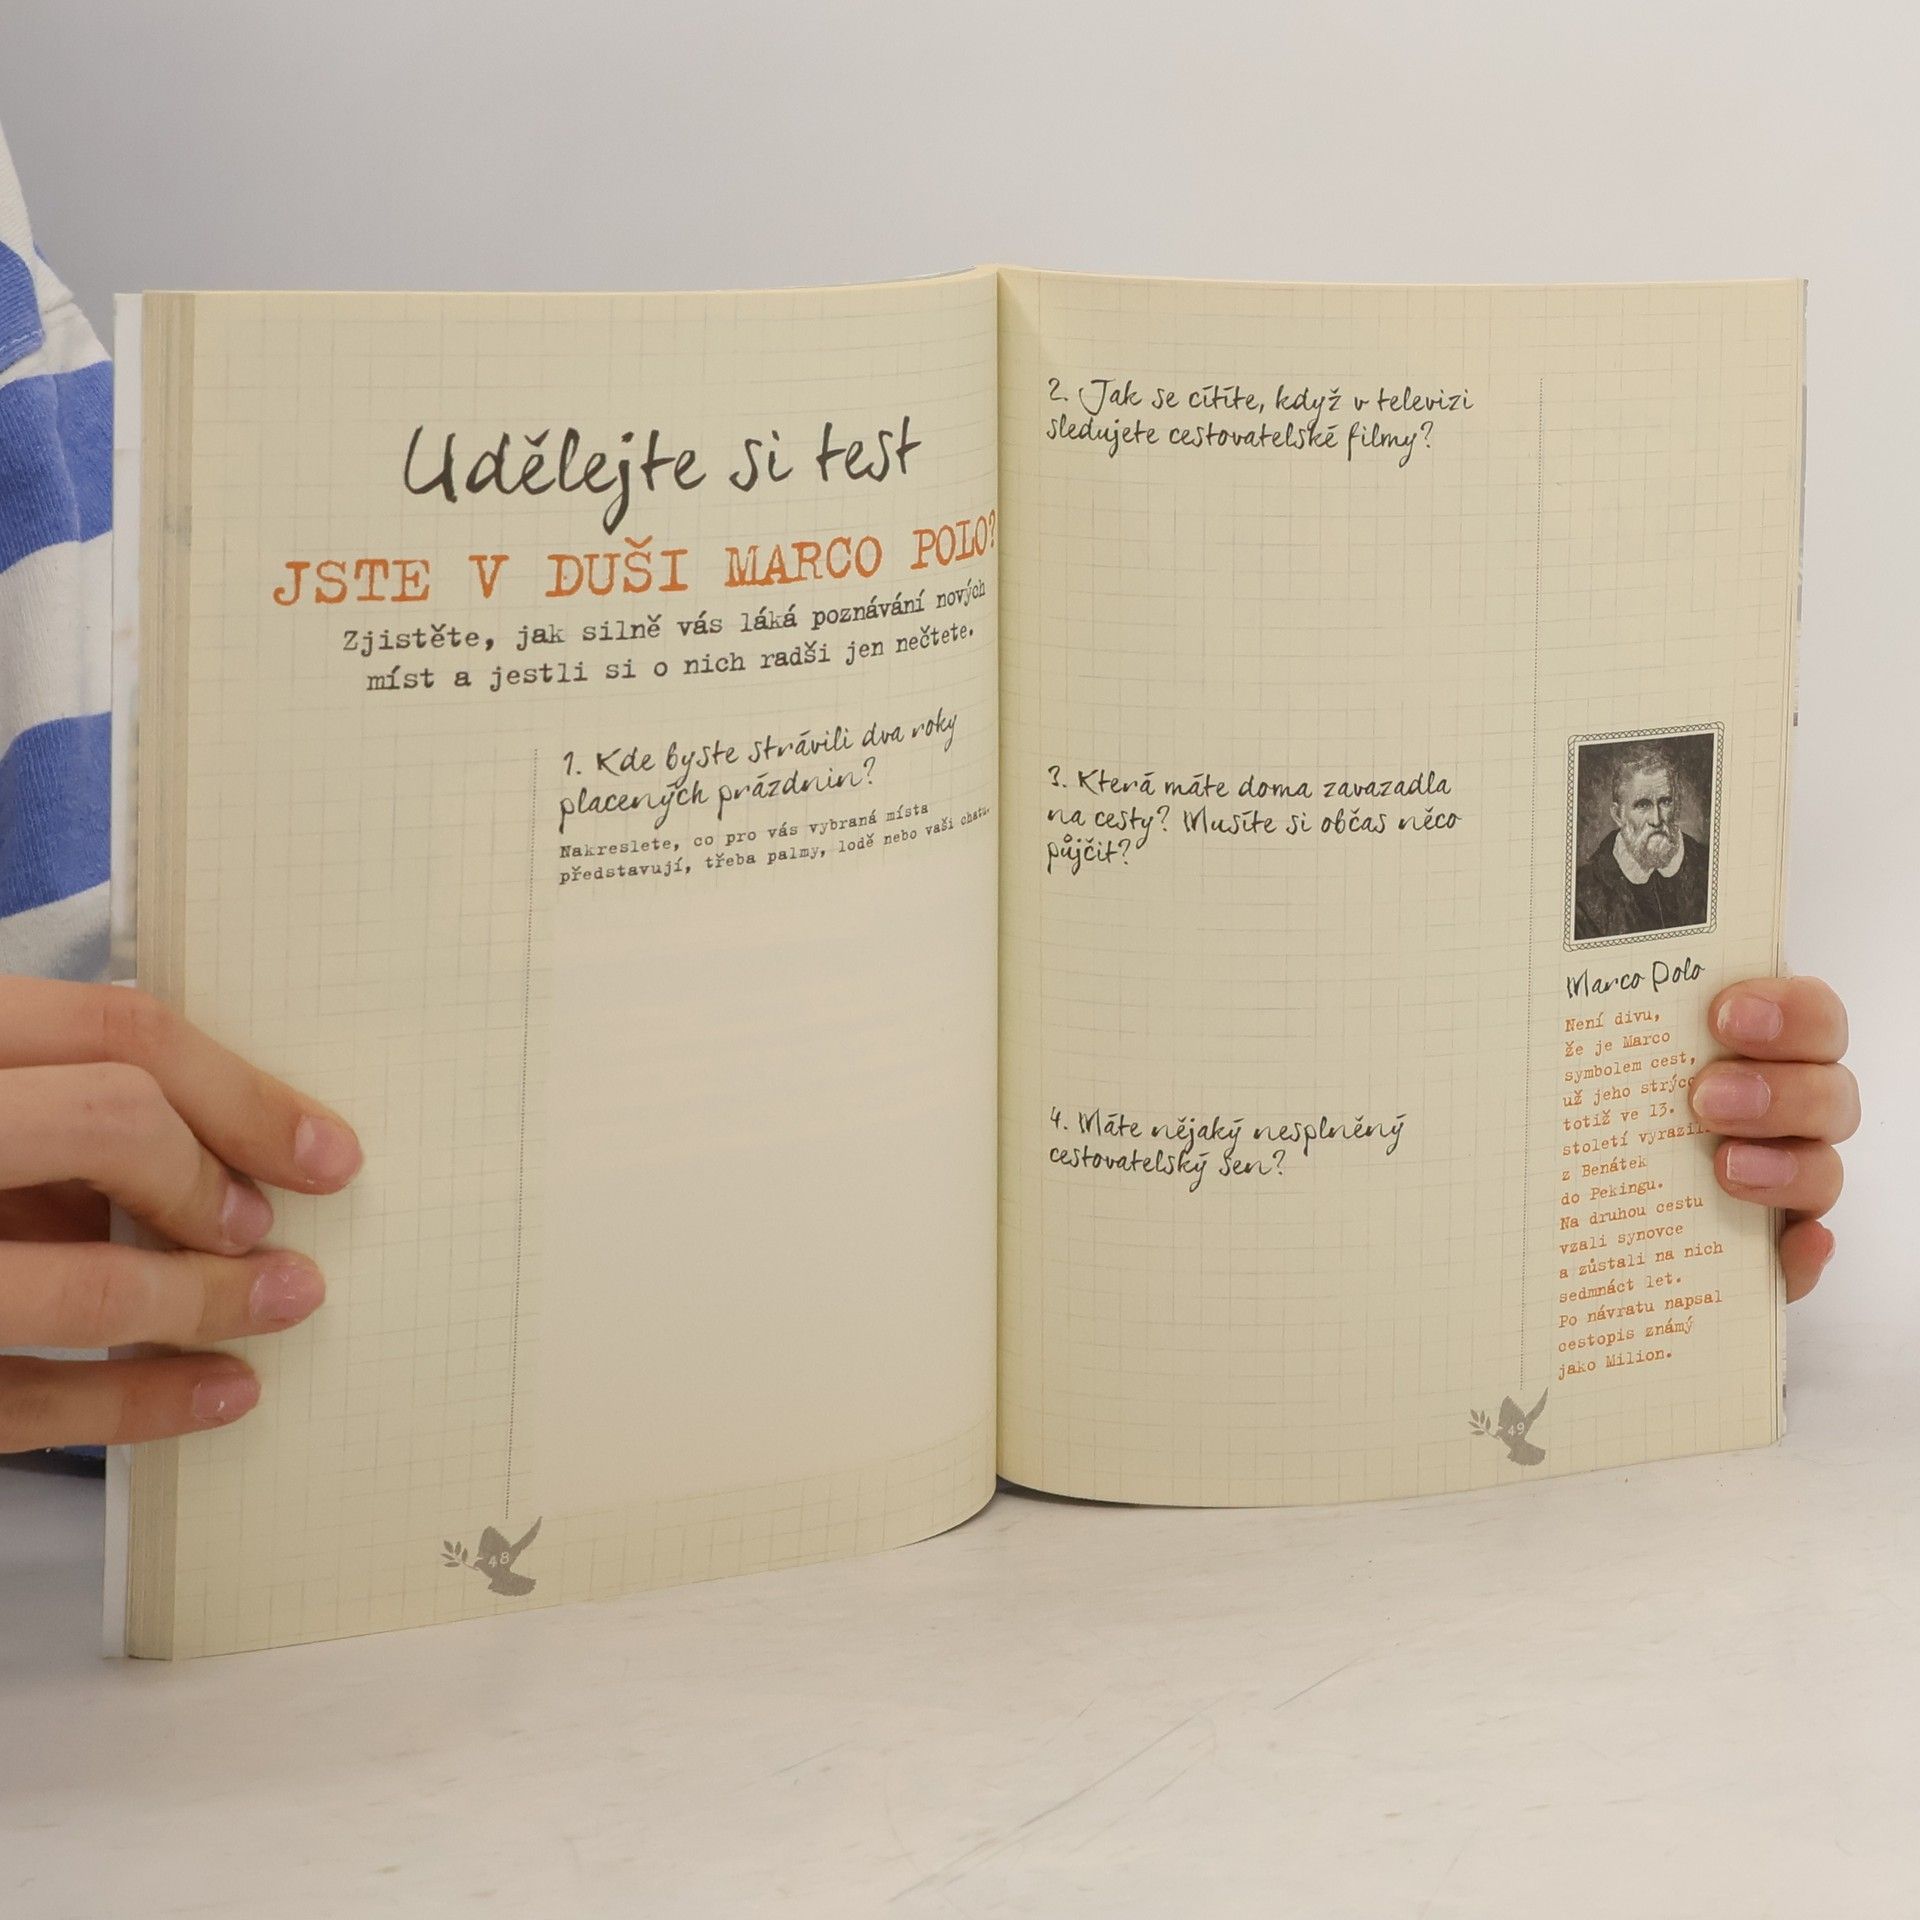 Udělejte si test
JSTE V DUŠI MARCO POLO?
Zjistěte, jak silně vás láká poznávání nových
míst a jestli si o nich radši jen nečtete.
1. Kde byste strávili dva roky
placených prázdnin?
Nakreslete, co pro vás vybraná místa
představují, třeba palmy, lodě nebo vaši chatu.
48
2. Jak se cítíte, když v televizi
sledujete cestovatelské filmy?
3. Která máte doma zavazadla
na cesty? Musíte si občas něco
půjčit?
4. Máte nějaký nesplněný
cestovatelský sen?
Marco Polo
Není divu,
že je Marco
symbolem cest,
už jeho
totiž ve 13.
století
z Benátek
do Pekingu.
Na druhou cestu
vzali synovce
a zůstali na nich
sedmnáct let.
Po návratu napsal
cestopis známý
jako Milion.
49